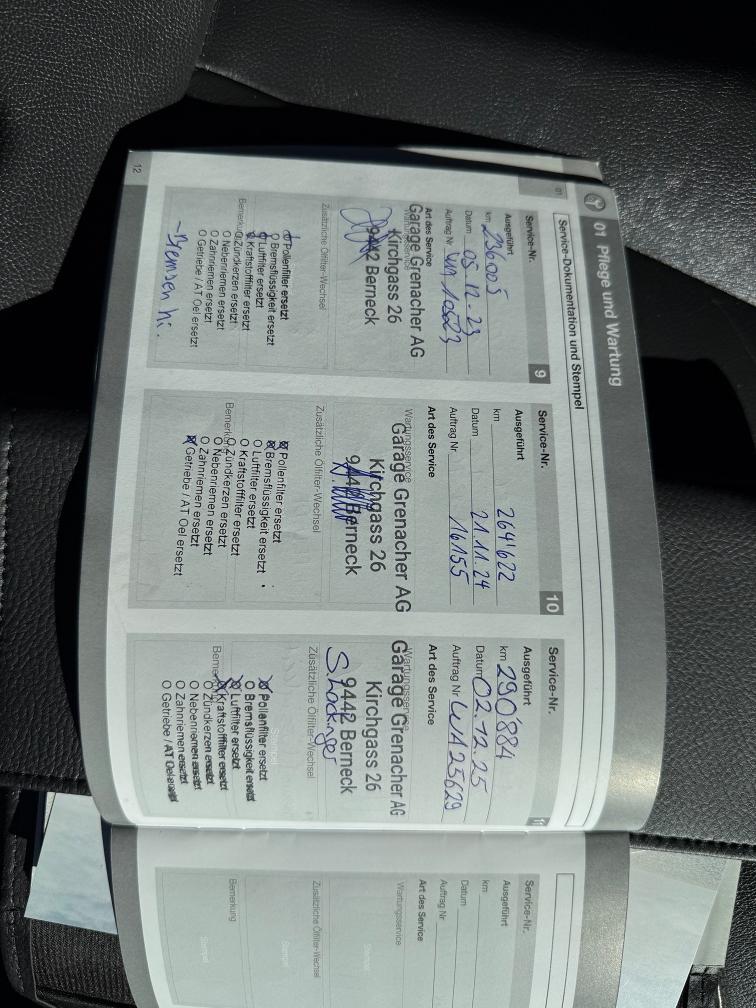 01 Pflege und Wartung
Service-Dokumentation und Stempel
01
Service-Nr. 9
Ausgeführt
km 236005
Datum 05.12.23
Auftrag Nr
Art des Service
Garage Grenacher AG
Kirchgass 26
9442 Berneck
Zusätzliche Ölfilter-Wechsel
Pollenfilter ersetzt
O Bremsflüssigkeit ersetzt
Luftfilter ersetzt
Kraftstofffilter ersetzt
Bemerkung
O Zündkerzen ersetzt
O Nebenriemen ersetzt
O Zahnriemen ersetzt
O Getriebe / AT Oel ersetzt
- Bremsen hi.
12
Service-Nr. 10
Ausgeführt
km 264'622
Datum 21.11.24
Auftrag Nr 16155
Art des Service
Wartungsservice
Garage Grenacher AG
Kirchgass 26
9442 Berneck
Zusätzliche Ölfilter-Wechsel
Pollenfilter ersetzt
Bremsflüssigkeit ersetzt
O Luftfilter ersetzt
O Kraftstofffilter ersetzt
Bemerkung
O Zündkerzen ersetzt
O Nebenriemen ersetzt
O Zahnriemen ersetzt
Getriebe / AT Oel ersetzt
Service-Nr. 11
Ausgeführt
km 290'884
Datum 02.12.25
Auftrag Nr WA25629
Art des Service
Wartungsservice
Garage Grenacher AG
Kirchgass 26
9442 Berneck
Zusätzliche Ölfilter-Wechsel
Pollenfilter ersetzt
O Bremsflüssigkeit ersetzt
Luftfilter ersetzt
Kraftstofffilter ersetzt
O Zündkerzen ersetzt
O Nebenriemen ersetzt
O Zahnriemen ersetzt
O Getriebe / AT Oel
Service-Nr.
Ausgeführt
km
Datum
Auftrag Nr
Art des Service
Wartungsservice
Stempel
Zusätzliche Ölfilter-Wechsel
Stempel
Bemerkung
Stempel